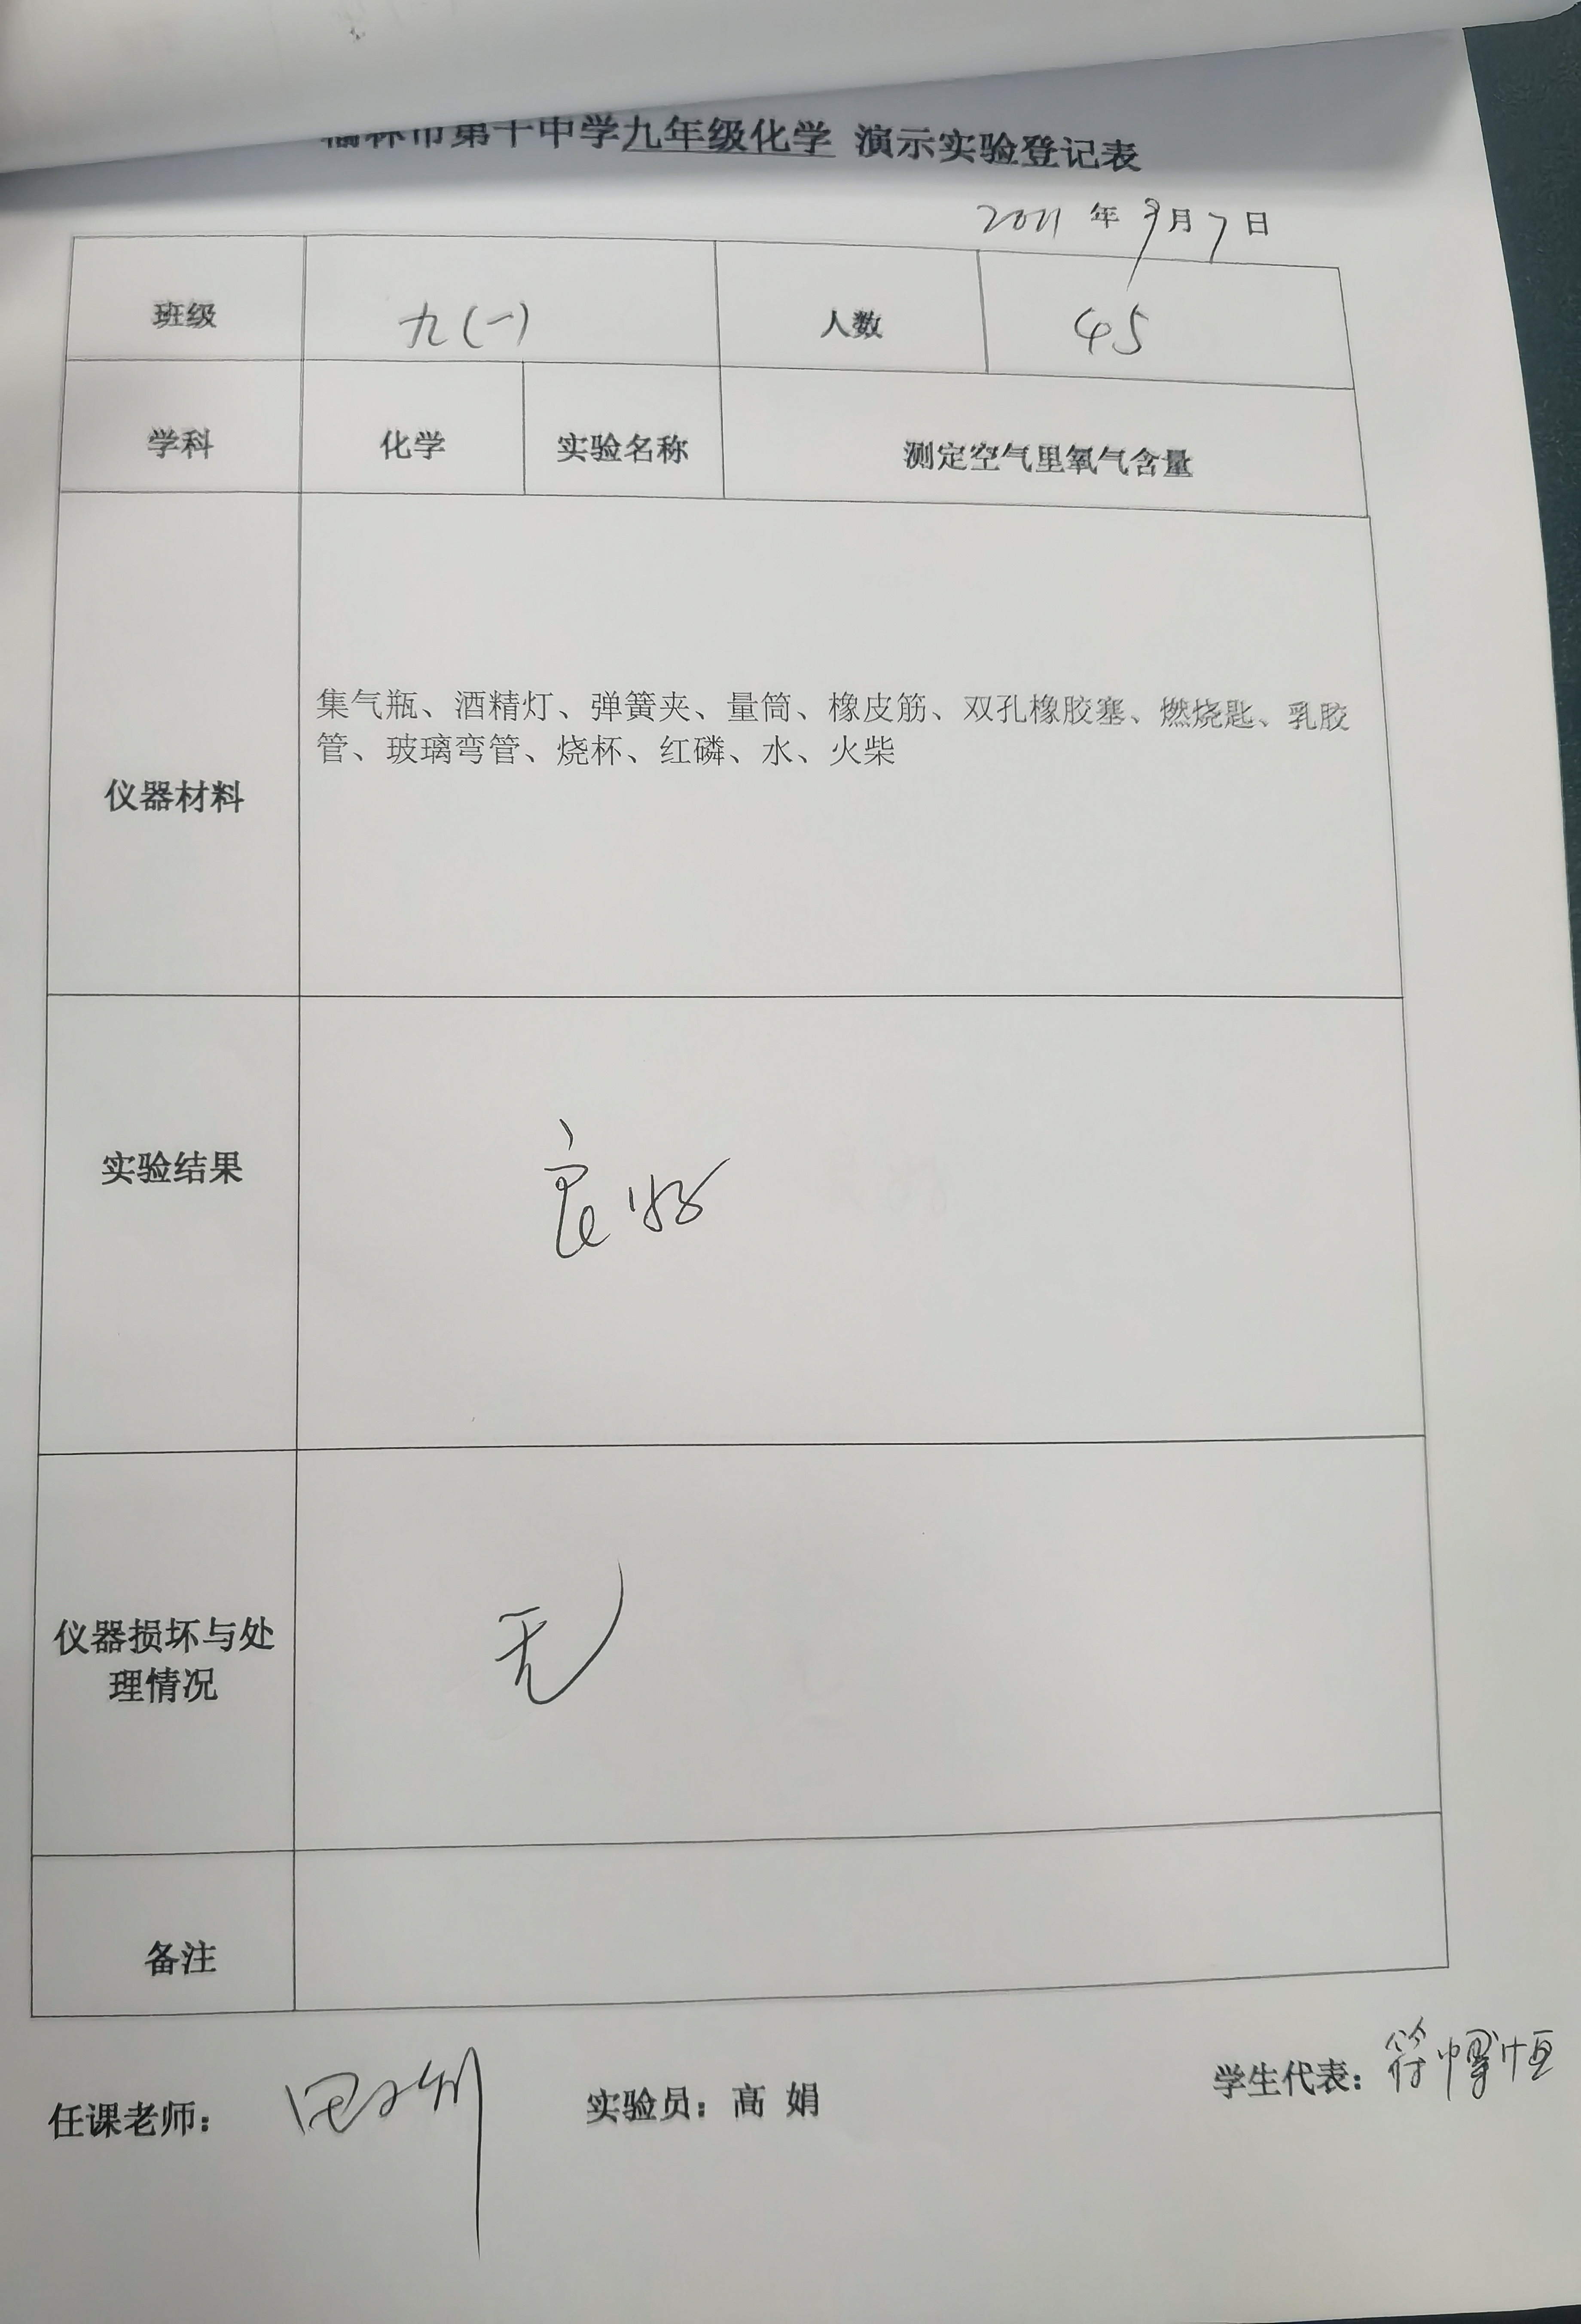 榆林市第十中学九年级化学 演示实验登记表
2021 年 9 月 7 日
班级 九(一) 人数 45
学科 化学 实验名称 测定空气里氧气含量
集气瓶、酒精灯、弹簧夹、量筒、橡皮筋、双孔橡胶塞、燃烧匙、乳胶
管、玻璃弯管、烧杯、红磷、水、火柴
仪器材料
实验结果 良好
仪器损坏与处
理情况
无
备注
任课老师： 实验员：高 娟 学生代表：